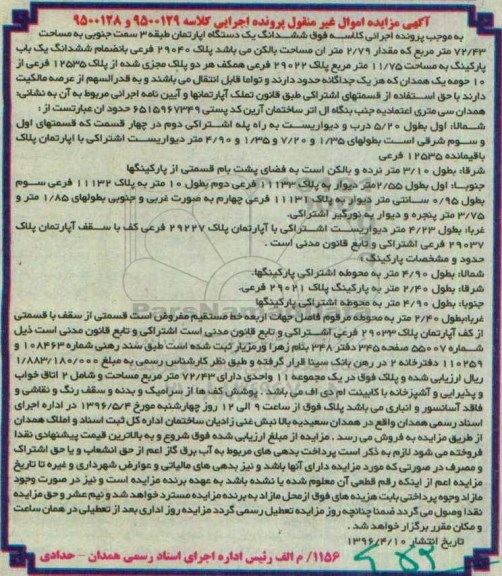 آگهی مزایده اموال غیر منقول پرونده اجرایی کلاسه ۹۵۰۰۱۲۹ و ۹۵۰۰۱۲۸
به موجب پرونده اجرائی کلاسه فوق ششدانگ یک دستگاه اپارتمان طبقه ۳ سمت جنوبی به مساحت
۷۲/۴۳ متر مربع که مقدار ۲/۷۹ متر ان مساحت بالکن می باشد پلاک ۲۹۰۴۰ فرعی بانضمام ششدانگ یک باب
پارکینگ به مساحت ۱۱/۷۵ متر مربع پلاک ۲۹۰۲۲ فرعی همکف هر دو پلاک مجزی شده از پلاک ۱۲۵۳۵ فرعی از
۱۰ حومه یک همدان که هر یک جداگانه حدود دارند و تواما قابل انتقال می باشند و به قدرالسهم از عرصه مالکیت
دارند با حق استفاده از قسمتهای اشتراکی طبق قانون تملک آپارتمانها و آیین نامه اجرایی مربوط به آن به نشانی:
همدان سی متری اعتمادیه جنب بنگاه ال اتر ساختمان آرین کد پستی ۶۵۱۵۹۶۷۳۴۹ حدود ان عبارتست از :
شمالا: اول بطول ۵/۲۰ درب و دیواریست به راه پله اشتراکی دوم در چهار قسمت که قسمتهای اول
و سوم شرقی است بطولهای ۱/۳۵ و ۷/۲۰ و ۱/۳۵ و ۴/۹۰ متر دیواریست اشتراکی با اپارتمان پلاک
باقیمانده ۱۲۵۳۵ فرعی
شرقا: بطول ۳/۱۰ متر نرده و بالکن است به فضای پشت بام قسمتی از پارکینگها
جنوبا: اول بطول ۲/۵۵متر دیوار به پلاک ۱۱۱۳۳ فرعی دوم بطول ۱۰ متر به پلاک ۱۱۱۳۲ فرعی سوم
بطول ۰/۹۵ سانتی متر دیوار به پلاک ۱۱۱۳۱ فرعی چهارم به صورت غربی و جنوبی بطولهای ۱/۸۵ متر و
۳/۷۵ متر پنجره و دیوار به نورگیر اشتراکی.
غربا: بطول ۴/۲۳ متر دیواریست اشتراکی با آپارتمان پلاک ۲۹۲۲۷ فرعی کف با سقف آپارتمان پلاک
۲۹۰۳۷ فرعی اشتراکی و تابع قانون مدنی است .
حدود و مشخصات پارکینگ :
شمالا: بطول ۴/۹۰ متر به محوطه اشتراکی پارکینگها.
شرقا: بطول ۲/۴۰ متر به پارکینگ پلاک ۲۹۰۲۱ فرعی.
جنوبا: بطول ۴/۹۰ متر به محوطه اشتراکی پارکینگها
غربا:بطول ۲/۴۰ متر به محوطه مرقوم فاصل جهات اربعه خط مستقیم مفروض است قسمتی از سقف با قسمتی
از کف آپارتمان پلاک ۲۹۰۳۳ فرعی اشتراکی و تابع قانون مدنی است اشتراکی و تابع قانون مدنی است ذیل
شماره ۵۵۰۰۷ صفحه ۳۴۵ دفتر ۳۴۸ بنام زهرا ورمزیار ثبت شده است طبق سند رهنی شماره ۱۰۸۴۶۳ و
۱۱۰۲۵۹ دفترخانه ۲ در رهن بانک سینا قرار گرفته و طبق نظر کارشناس رسمی به مبلغ ۱/۸۸۳/۱۸۰/۰۰۰
ریال ارزیابی شده و پلاک فوق در یک مجموعه ۱۱ واحدی دارای ۷۲/۴۳ متر مربع مساحت و شامل ۲ اتاق خواب
و پذیرایی و آشپزخانه با کابینت ام دی اف می باشد. پوشش کف ها از سرامیک و بدنه و سقف رنگ و نقاشی و
فاقد آسانسور و انباری می باشد پلاک فوق از ساعت ۹ الی ۱۲ روز چهارشنبه مورخ ۱۳۹۶/۵/۴ در اداره اجرای
اسناد رسمی همدان واقع در همدان سعیدیه بالا نبش غنی زادیان ساختمان اداره کل ثبت اسناد و املاک همدان
از طریق مزایده به فروش می رسد . مزایده از مبلغ ارزیابی شده فوق شروع و به بالاترین قیمت پیشنهادی نقدا
فروخته می شود لازم به ذکر است پرداخت بدهی های مربوط به آب برق گاز اعم از حق انشعاب و یا حق اشتراک
و مصرف در صورتی که مورد مزایده دارای آنها باشد و نیز بدهی های مالیاتی و عوارض شهرداری و غیره تا تاریخ
مزایده اعم از اینکه رقم قطعی آن معلوم شده یا نشده باشد به عهده برنده مزایده است و نیز در صورت وجود
مازاد وجوه پرداختی بابت هزینه های فوق ازمحل مازاد به برنده مزایده مسترد خواهد شد و نیم عشر و حق مزایده
نقدا وصول می گردد ضمنا چنانچه روز مزایده تعطیل رسمی گردد مزایده روز اداری بعد از تعطیلی در همان ساعت
و مکان مقرر برگزار خواهد شد .
تاریخ انتشار ۱۳۹۶/۴/۱۰
۱۱۵۶/ م الف رئیس اداره اجرای اسناد رسمی همدان - حدادی